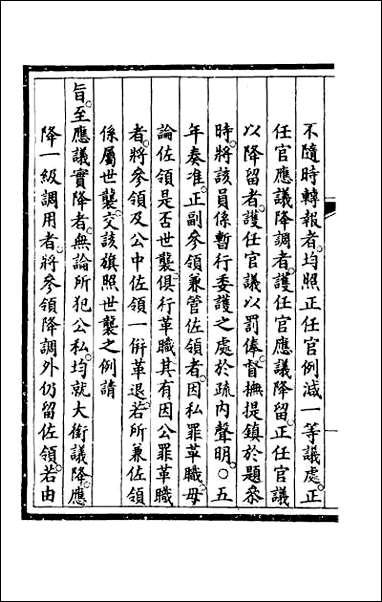 不隨時轉報者。均照正任官例減一等議處。正
任官應議降調者。護任官應議降留。正任官議
以降留者。護任官議以罰俸。督撫提鎮於題叅
時。將該員係暫行委護之處於疏內聲明。○五
年奏准。正副參領兼管佐領者。因私罪革職。毋
論佐領是否世襲。俱行革職。其有因公罪革職
者。將參領及公中佐領一倂革退。若所兼佐領
係屬世襲。交該旗照世襲之例請
旨。至應議實降者。無論所犯公私。均就大銜議降。應
降一級調用者。將參領降調外仍留佐領。若由